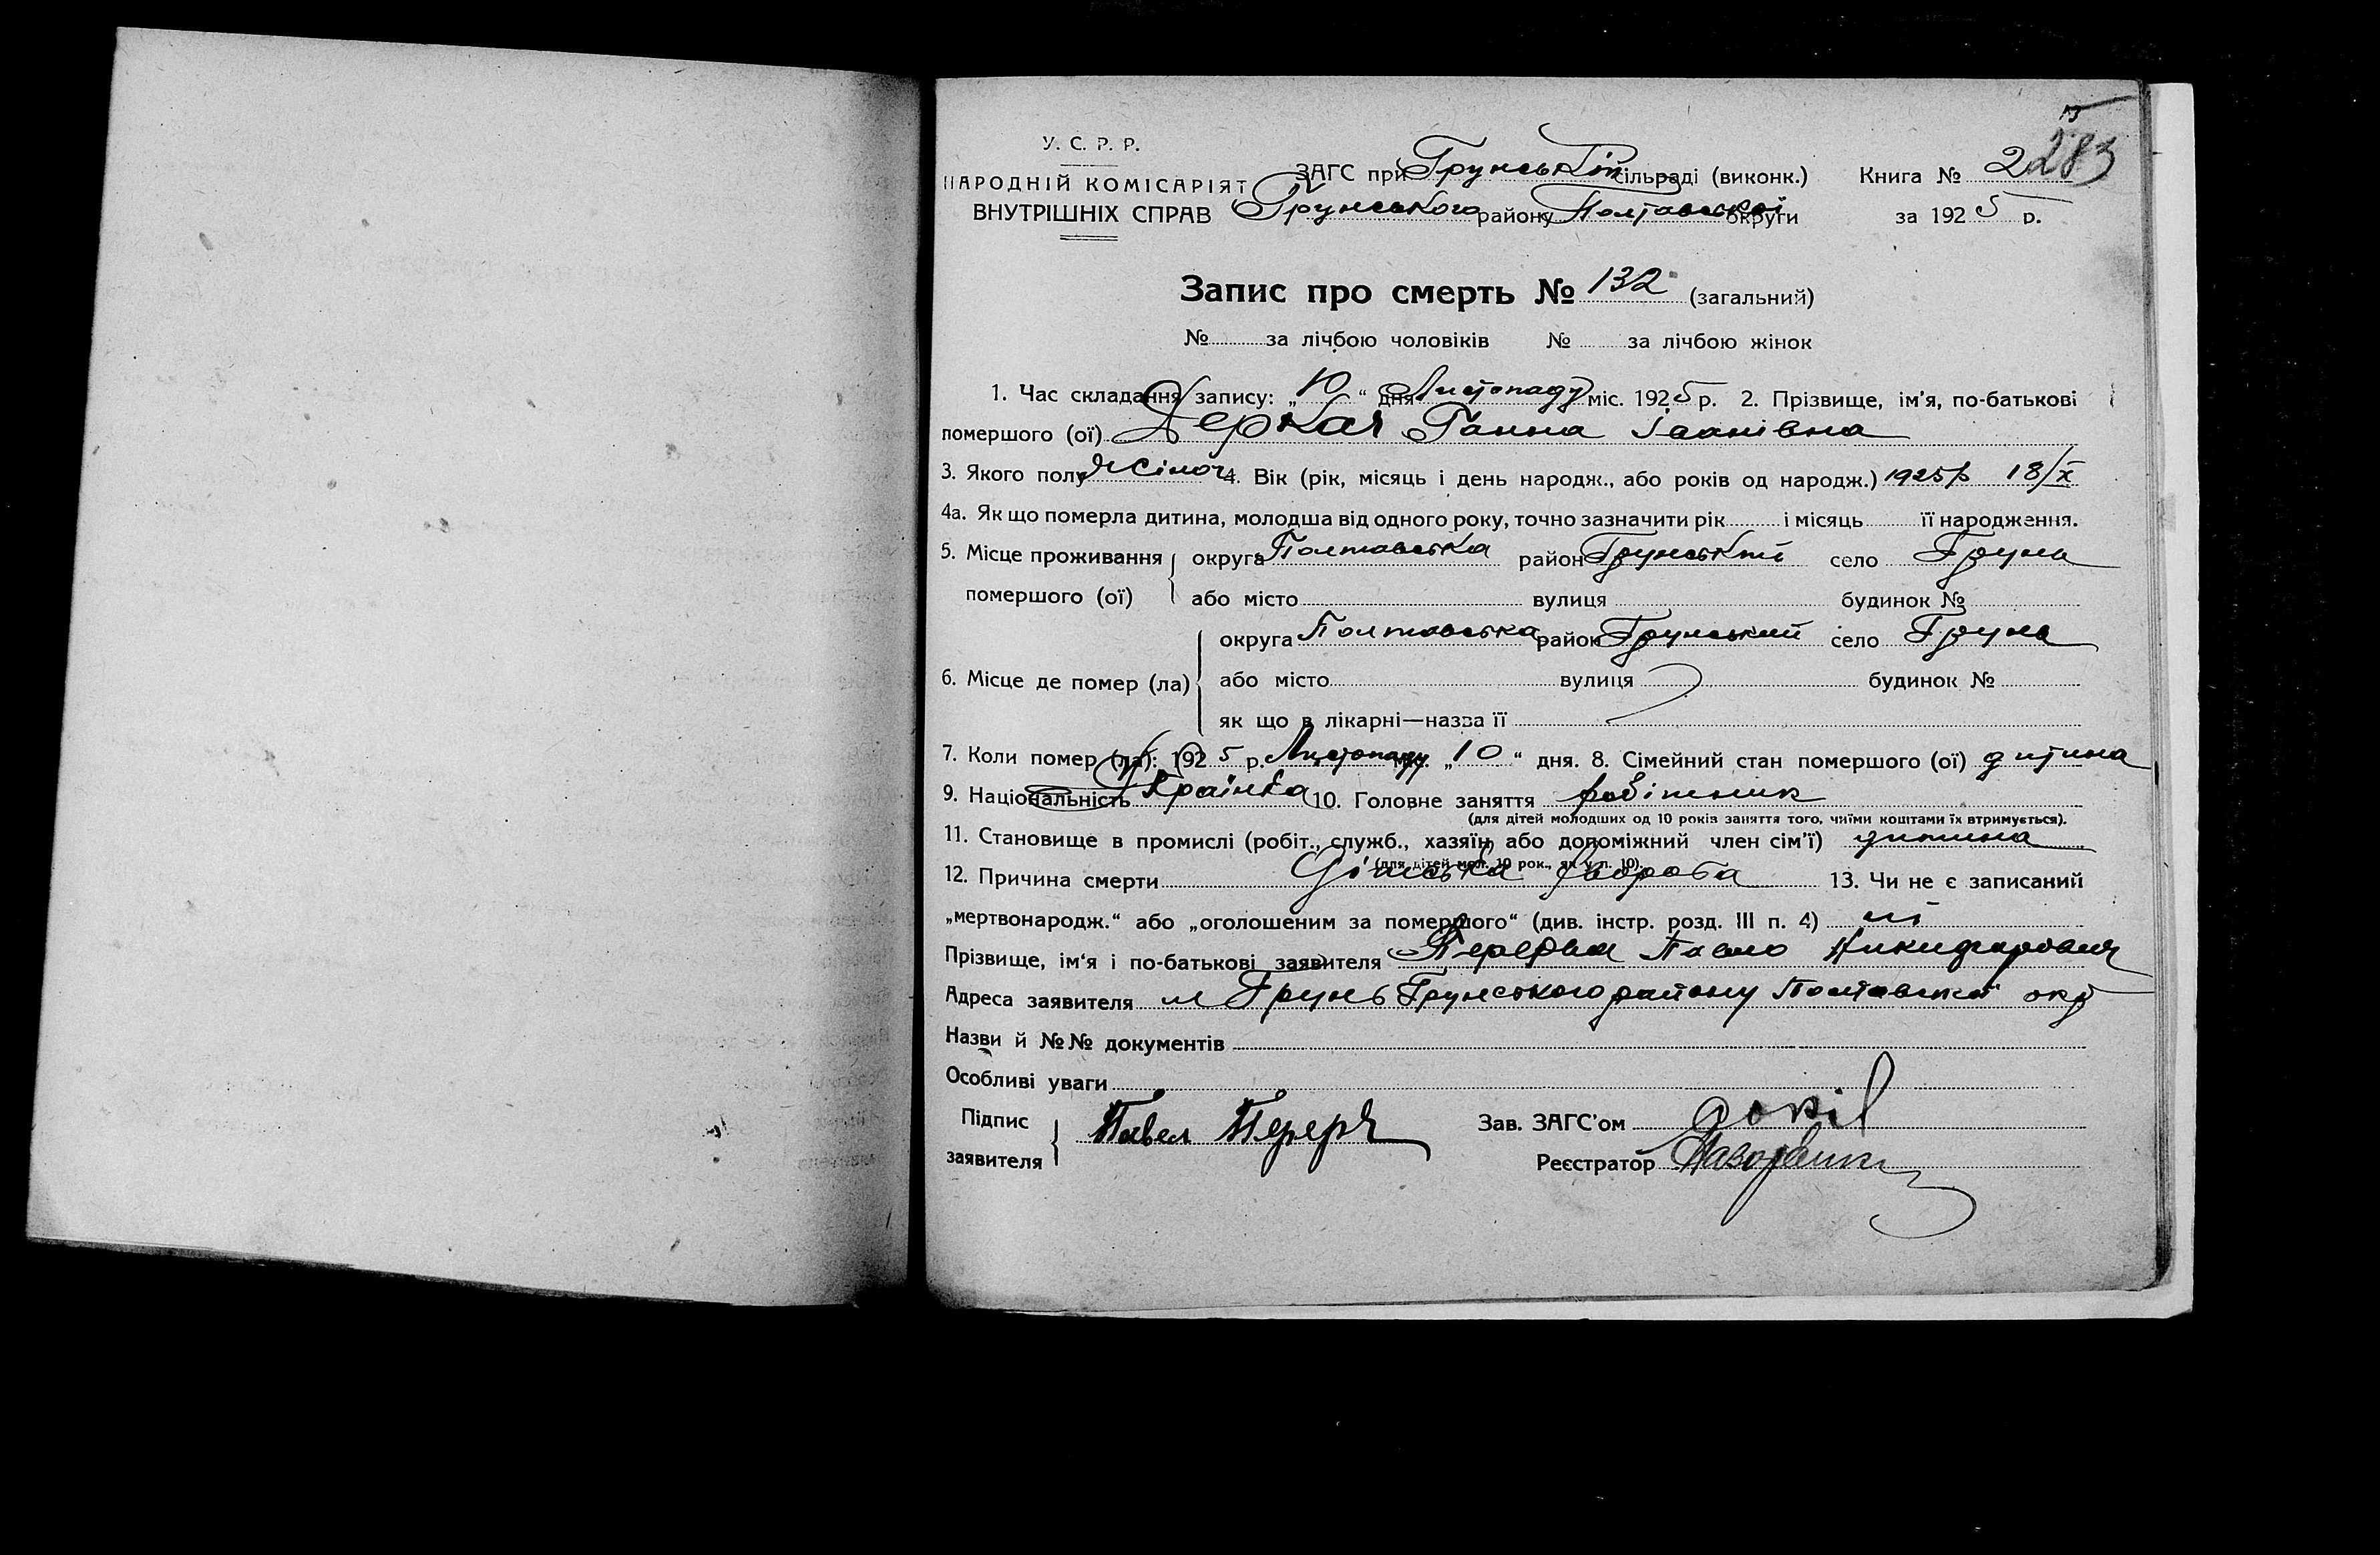 283
У. С. Р. Р.
НАРОДНІЙ КОМІСАРІЯТ
ВНУТРІШНІХ СПРАВ
ЗАГС при Грунській сільраді (виконк.) Книга № 2
Грунського району Полтавської округи за 1925 р.
Запис про смерть № 132 (загальний)
№ за лічбою чоловіків № за лічбою жінок
1. Час складання запису: „10“ дня Листопаду міс. 1925 р. 2. Прізвище, ім'я, по-батькові
помершого (ої) Деркач Ганна Іванівна
3. Якого полу жіноч 4. Вік (рік, місяць і день народж., або років од народж.) 1925 р 18/X
4а. Як що померла дитина, молодша від одного року, точно зазначити рік і місяць її народження.
5. Місце проживання помершого (ої) округа Полтавська район Грунський село Грунь
або місто вулиця будинок №
округа Полтавська район Грунський село Грунь
6. Місце де помер (ла) або місто вулиця будинок №
як що в лікарні—назва її
7. Коли помер (ла): 1925 р. Листопаду міс. „10“ дня. 8. Сімейний стан помершого (ої) дитина
9. Національність Українка 10. Головне заняття робітник
(для дітей молодших од 10 років заняття того, чиїми коштами їх втримується).
11. Становище в промислі (робіт., служб., хазяїн, або допоміжний член сім'ї) дитина
(для дітей мол. 10 рок., як у п. 10).
12. Причина смерти хвороба 13. Чи не є записаний
„мертвонародж.“ або „оголошеним за помершого“ (див. інстр. розд. III п. 4) ні
Прізвище, ім'я і по-батькові заявителя Павло
Адреса заявителя м Грунь Грунського району Полтавської окр
Назви й №№ документів
Особливі уваги
Підпис заявителя Павел
Зав. ЗАГС'ом
Реєстратор